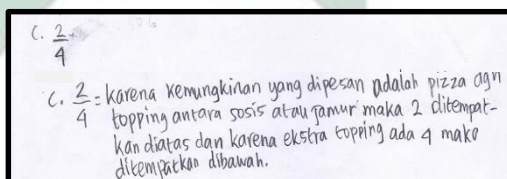 C. 2/4
C. 2/4 = karena kemungkinan yang dipesan adalah pizza dgn
topping antara sosis atau jamur maka 2 ditempat-
kan diatas dan karena ekstra topping ada 4 maka
ditempatkan dibawah.